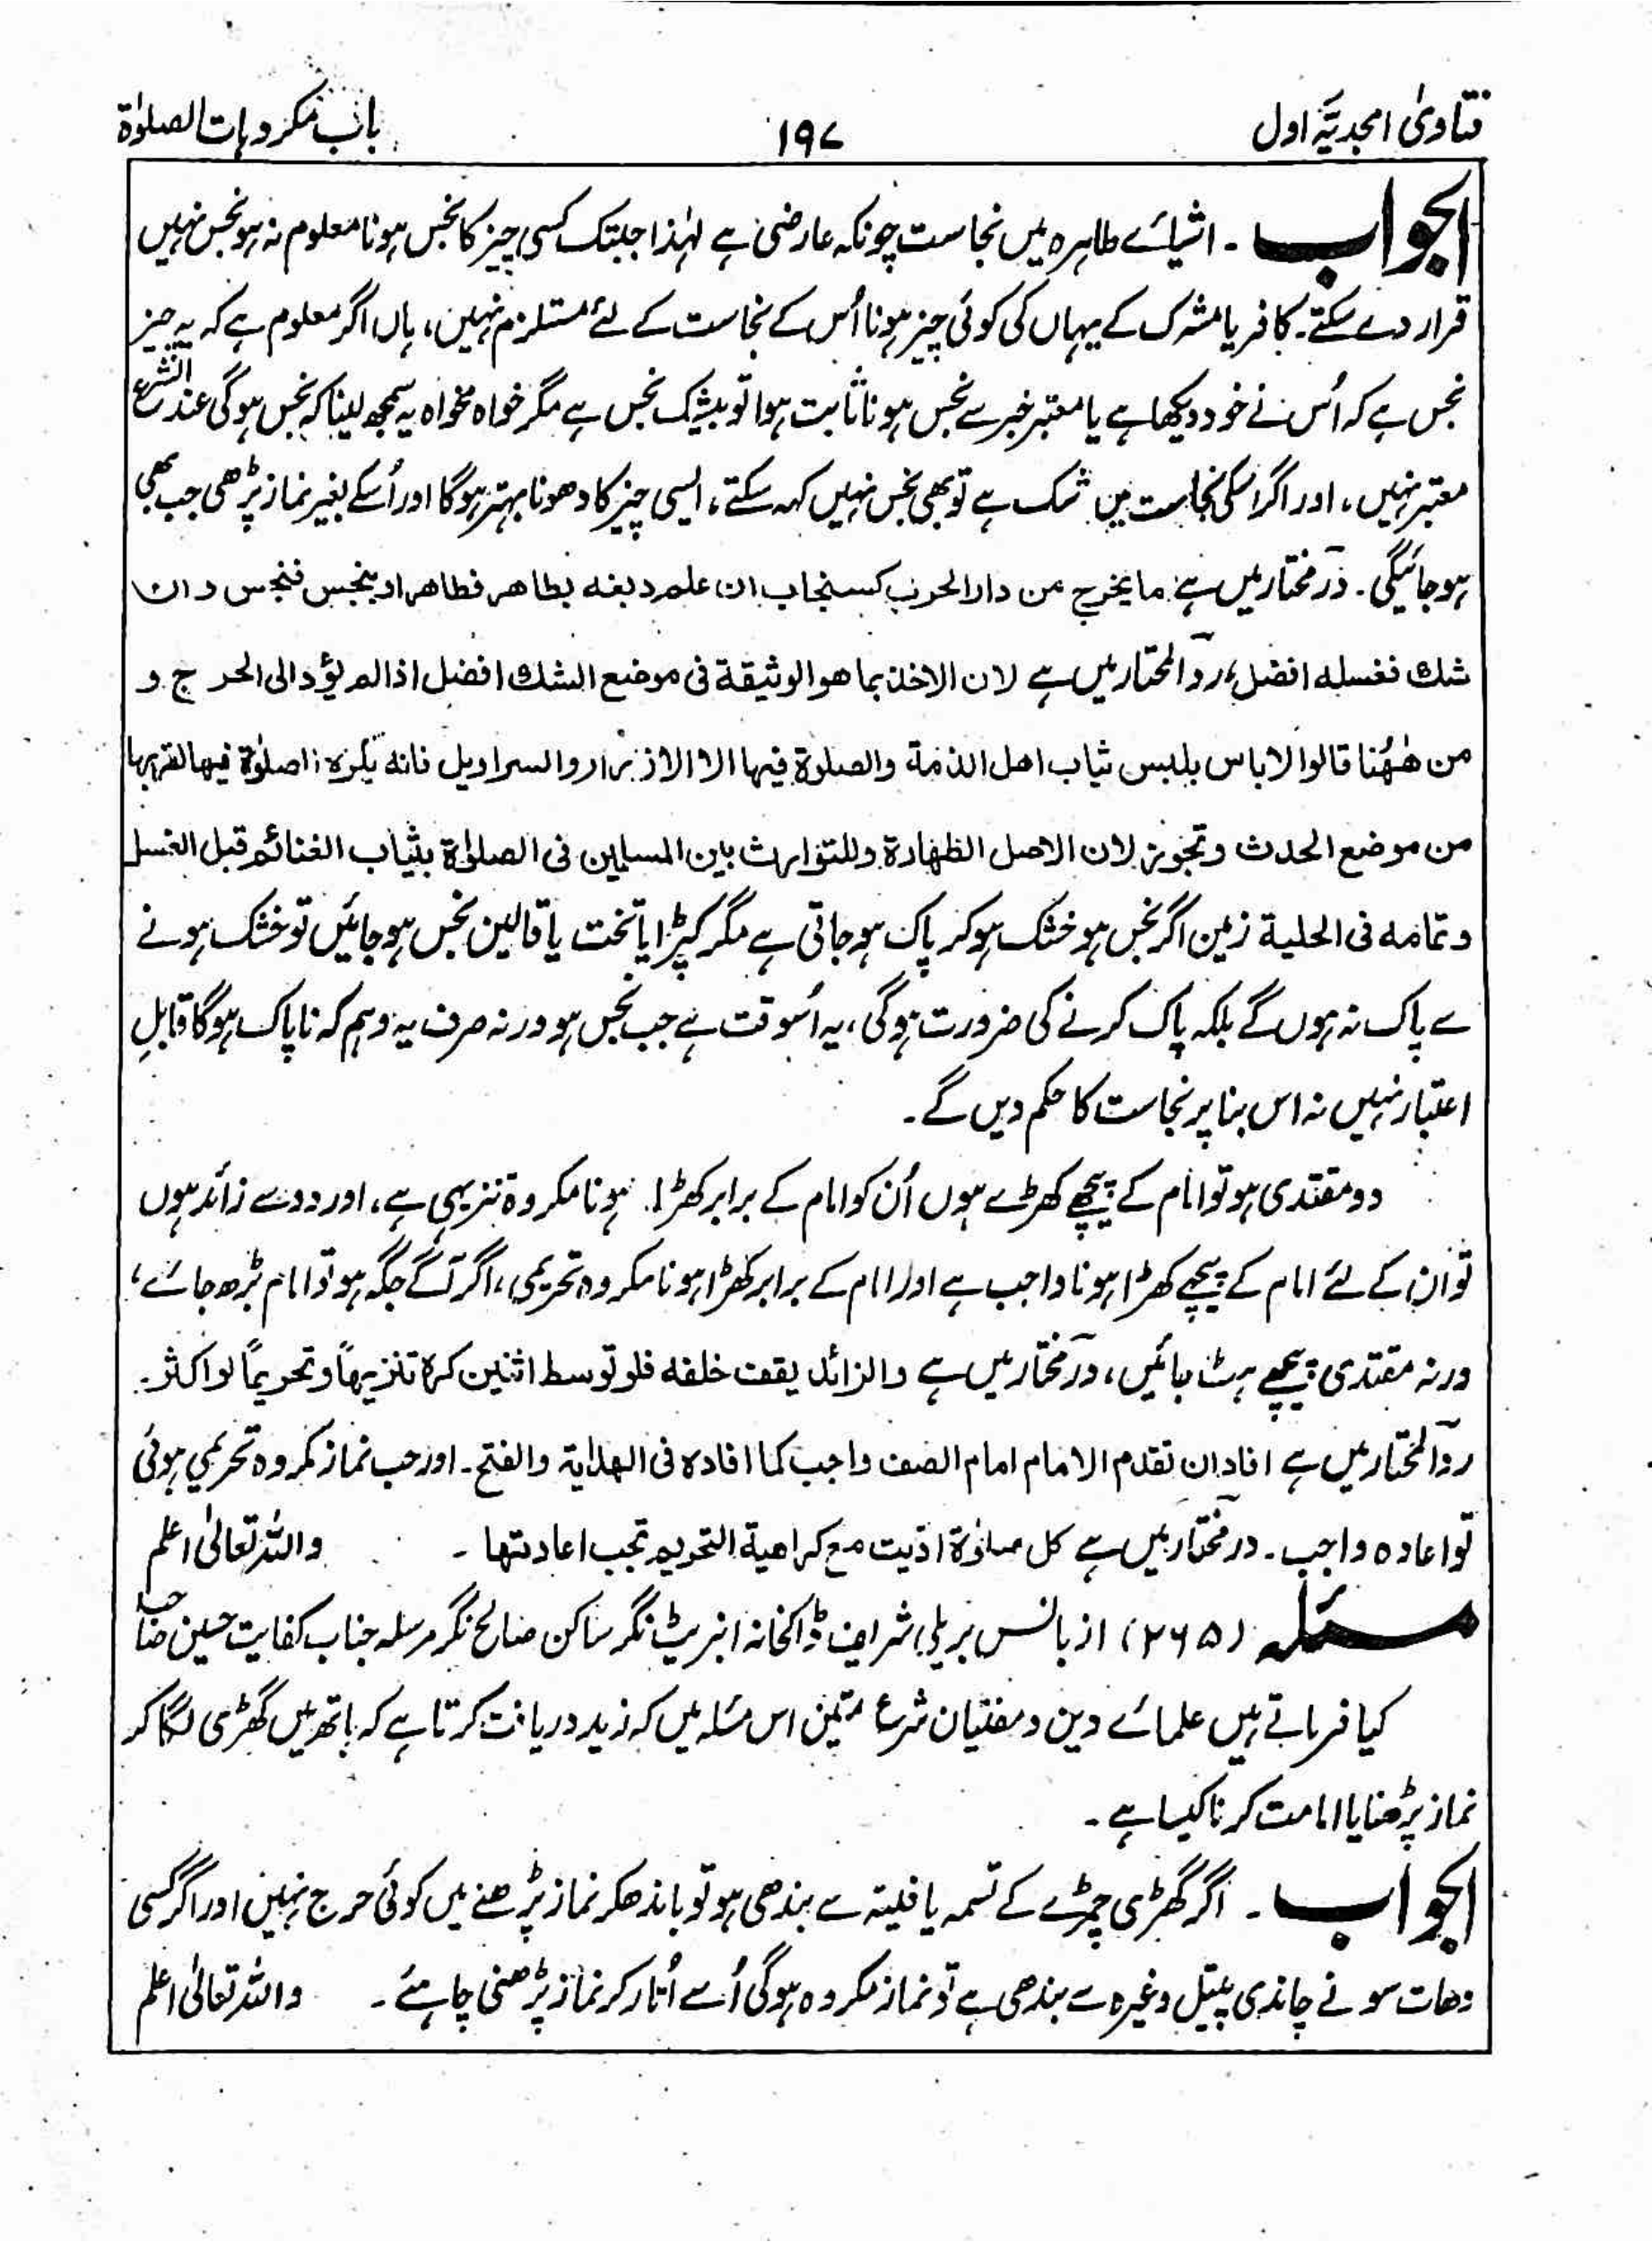 فتاویٰ امجدیہ اول ۱۹۷ باب مکروہات الصلوٰۃ
الجواب ۔ اشیائے طاہرہ میں نجاست چونکہ عارضی ہے لہٰذا جبتک کسی چیز کا نجس ہونا معلوم نہ ہو نجس نہیں
قرار دے سکتے۔ کافر یا مشرک کے یہاں کی کوئی چیز ہونا اُس کے نجاست کے لئے مستلزم نہیں، ہاں اگر معلوم ہے کہ یہ چیز
نجس ہے کہ اُس نے خود دیکھا ہے یا معتبر خبر سے نجس ہونا ثابت ہوا تو بیشک نجس ہے مگر خواہ مخواہ یہ سمجھ لینا کہ نجس ہوگی عند الشرع
معتبر نہیں، اور اگر اسکی نجاست میں شک ہے تو بھی نجس نہیں کہہ سکتے، ایسی چیز کا دھونا بہتر ہوگا اور اُسکے بغیر نماز پڑھی جب بھی
ہوجائیگی۔ درمختار میں ہے ما یخرج من دار الحرب کسنجاب ان علم دبغه بطاهر فطاهر او بنجس فنجس و ان
شك فغسله افضل، ردالمحتار میں ہے لان الاخذ بما هو الوثیقة فی موضع الشك افضل اذا لم یؤد الی الحرج و
من هٰهُنا قالوا لا باس بلبس ثیاب اهل الذمة والصلوة فیها الا الازار والسراویل فانه یکره الصلوٰة فیها لقربها
من موضع الحدث وتجوز لان الاصل الطهارة وللتوارث بین المسلمین فی الصلوٰة بثیاب الغنائم قبل الغسل
وتمامه فی الحلیة زمین اگر نجس ہو خشک ہوکر پاک ہوجاتی ہے مگر کپڑا یا تخت یا قالین نجس ہوجائیں تو خشک ہونے
سے پاک نہ ہوں گے بلکہ پاک کرنے کی ضرورت ہوگی، یہ اُسوقت ہے جب نجس ہو ورنہ صرف یہ وہم کہ ناپاک ہوگا قابلِ
اعتبار نہیں نہ اس بنا پر نجاست کا حکم دیں گے۔
دو مقتدی ہو تو امام کے پیچھے کھڑے ہوں اُن کو امام کے برابر کھڑا ہونا مکروہ تنزیہی ہے، اور دو سے زائد ہوں
تو ان کے لئے امام کے پیچھے کھڑا ہونا واجب ہے اور امام کے برابر کھڑا ہونا مکروہ تحریمی، اگر آگے جگہ ہو تو امام بڑھ جائے،
ورنہ مقتدی پیچھے ہٹ جائیں، درمختار میں ہے والزائد یقف خلفه فلو توسط اثنین کره تنزیهاً و تحریماً لو اکثر۔
ردالمحتار میں ہے افاد ان تقدم الامام امام الصف واجب کما افاده فی الهدایة والفتح۔ اور جب نماز مکروہ تحریمی ہوئی
تو اعادہ واجب۔ درمختار میں ہے کل صلوٰة ادّیت مع کراهیة التحریم تجب اعادتها ۔ واللہ تعالیٰ اعلم
مسئلہ (۲۶۵) از بانس بریلی شریف ڈاکخانہ انبریٹ نگر ساکن صالح نگر مرسلہ جناب کفایت حسین صاحب
کیا فرماتے ہیں علمائے دین و مفتیان شرع متین اس مسئلہ میں کہ زید دریافت کرتا ہے کہ ہاتھ میں گھڑی لگا کر
نماز پڑھنا یا امامت کرنا کیسا ہے۔
الجواب ۔ اگر گھڑی چمڑے کے تسمہ یا فلیتہ سے بندھی ہو تو باندھکر نماز پڑھنے میں کوئی حرج نہیں اور اگر کسی
دھات سونے چاندی پیتل وغیرہ سے بندھی ہے تو نماز مکروہ ہوگی اُسے اُتار کر نماز پڑھنی چاہئے۔ واللہ تعالیٰ اعلم